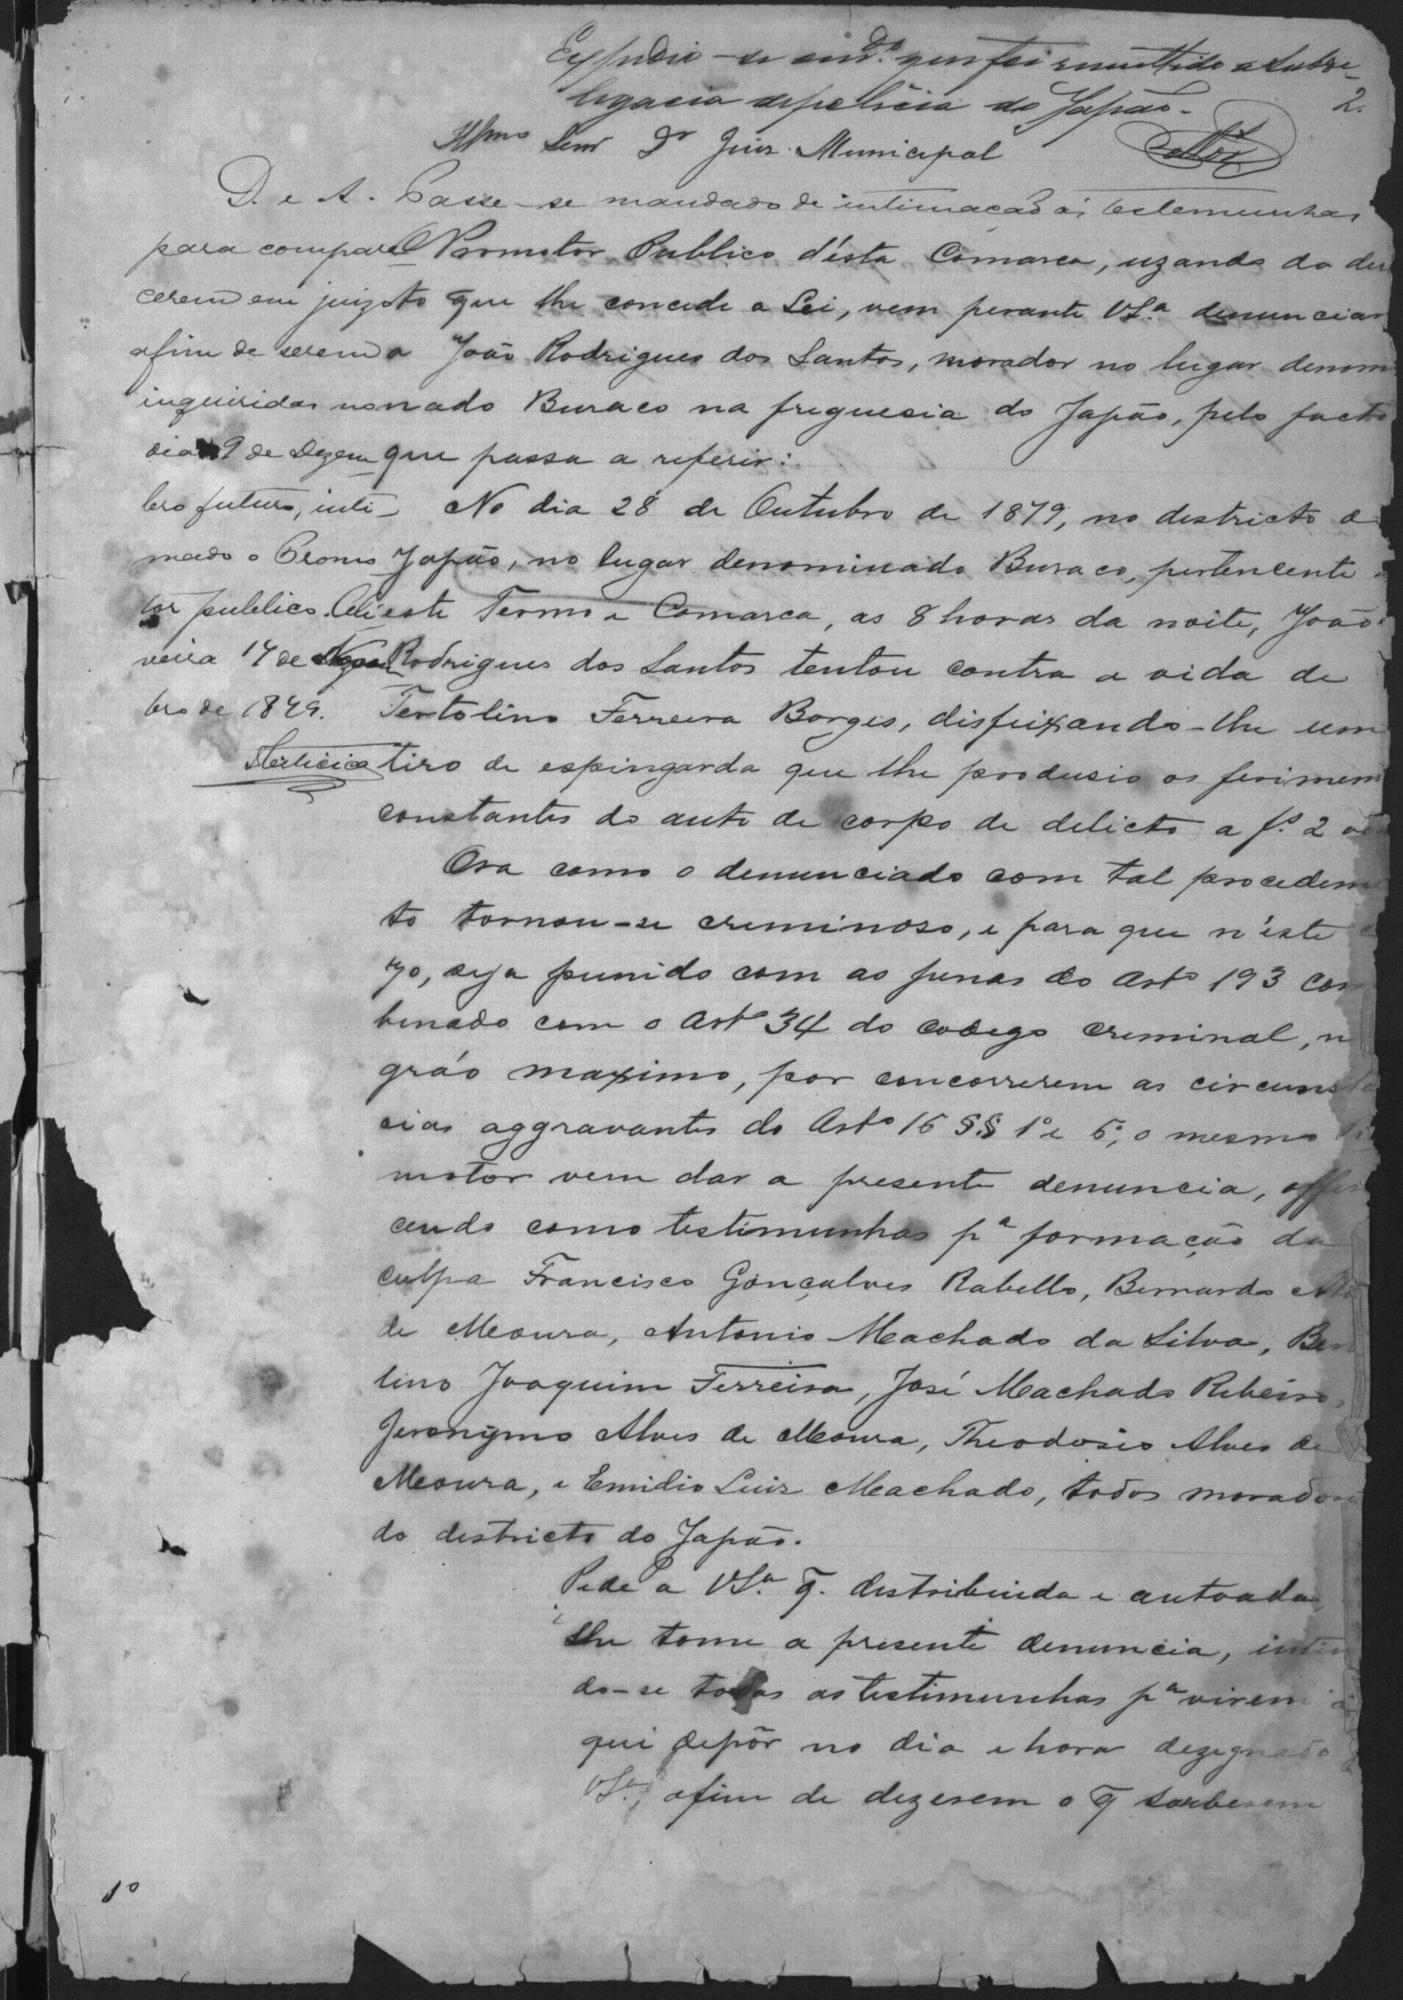 Expedio-se md.º que foi remettido a subde-
legacia de policia do Japão.
2.
Illmo Senr Dr Juiz Municipal
D. e A. Passe-se mandado de intimação ás testemunhas
para compare
cerem em juizo
afim de serem
inqueridas no
dia 9 de Dezem
bro futuro, inti-
mado o Promo
tor publico. Oli
veira 17 de Novem
bro de 1879.
O Promotor Publico d'ésta Comarca, uzando do dir
to que lhe concede a Lei, vem perante VSª denunciar
a João Rodrigues dos Santos, morador no lugar denom
nado Buraco na freguesia do Japão, pelo facto
que passa a referir:
No dia 28 de Outubro de 1879, no districto d
Japão, no lugar denominado Buraco, pertencente
a éste Termo e Comarca, as 8 horas da noite, João
Rodrigues dos Santos tentou contra a vida de
Tertolino Ferreira Borges, disfeixando-lhe um
tiro de espingarda que lhe produsio os ferimen
constantes do auto de corpo de delicto a fs. 2
Ora como o denunciado com tal procedim
to tornou-se creminoso, e para que n'éste
go, seja punido com as penas do Artº 193 com
benado com o Artº 34 do codego creminal, n
gráo maximo, por concorrerem as circunst
cias aggravantes do Artº 16 §§ 1º e 6º, o mesmo
motor vem dar a presente denuncia, offer
cendo como testimunhas pª formação da
culpa Francisco Gonçalves Rabello, Bernardo
de Moura, Antonio Machado da Silva, Ber
lino Joaquim Ferreira, José Machado Ribeiro,
Jeronymo Alves de Moura, Theodosio Alves de
Moura, e Emidio Luiz Machado, todos morador
do districto do Japão.
Pede a VSª q. distribuida e autoada
lhe tome a presente denuncia, intim
do-se todas as testimunhas pª virem a
qui depôr no dia e hora dezegnado
VSª, afim de dezerem o q souberem
1º